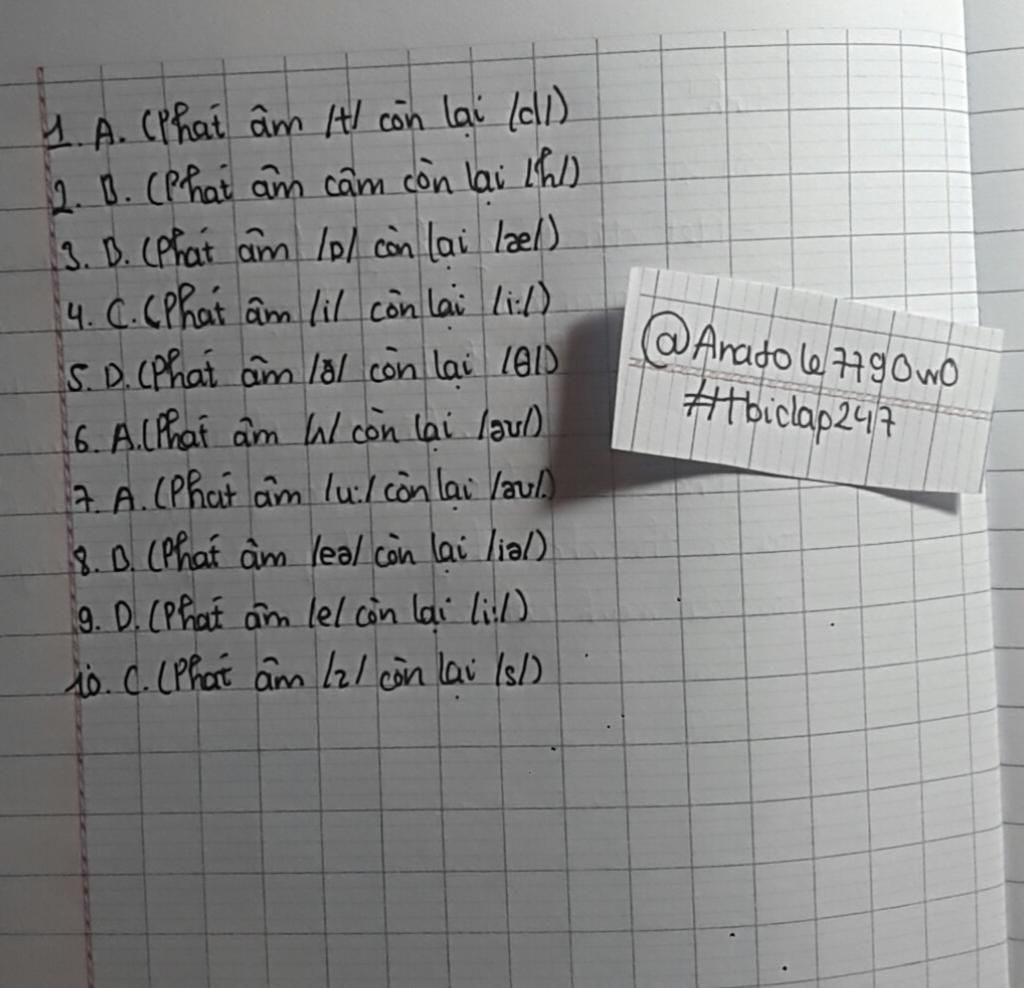 1. A. (Phát âm /t/ còn lại /d/)
2. B. (Phát âm câm còn lại /h/)
3. B. (Phát âm /ɒ/ còn lại /æ/)
4. C. (Phát âm /i/ còn lại /i:/)
5. D. (Phát âm /ð/ còn lại /θ/)
6. A. (Phát âm /ʌ/ còn lại /əu/)
7. A. (Phát âm /u:/ còn lại /əu/)
8. D. (Phát âm /eə/ còn lại /iə/)
9. D. (Phát âm /e/ còn lại /i:/)
10. C. (Phát âm /z/ còn lại /s/)
@Anatole7790w0
#tbiclap247